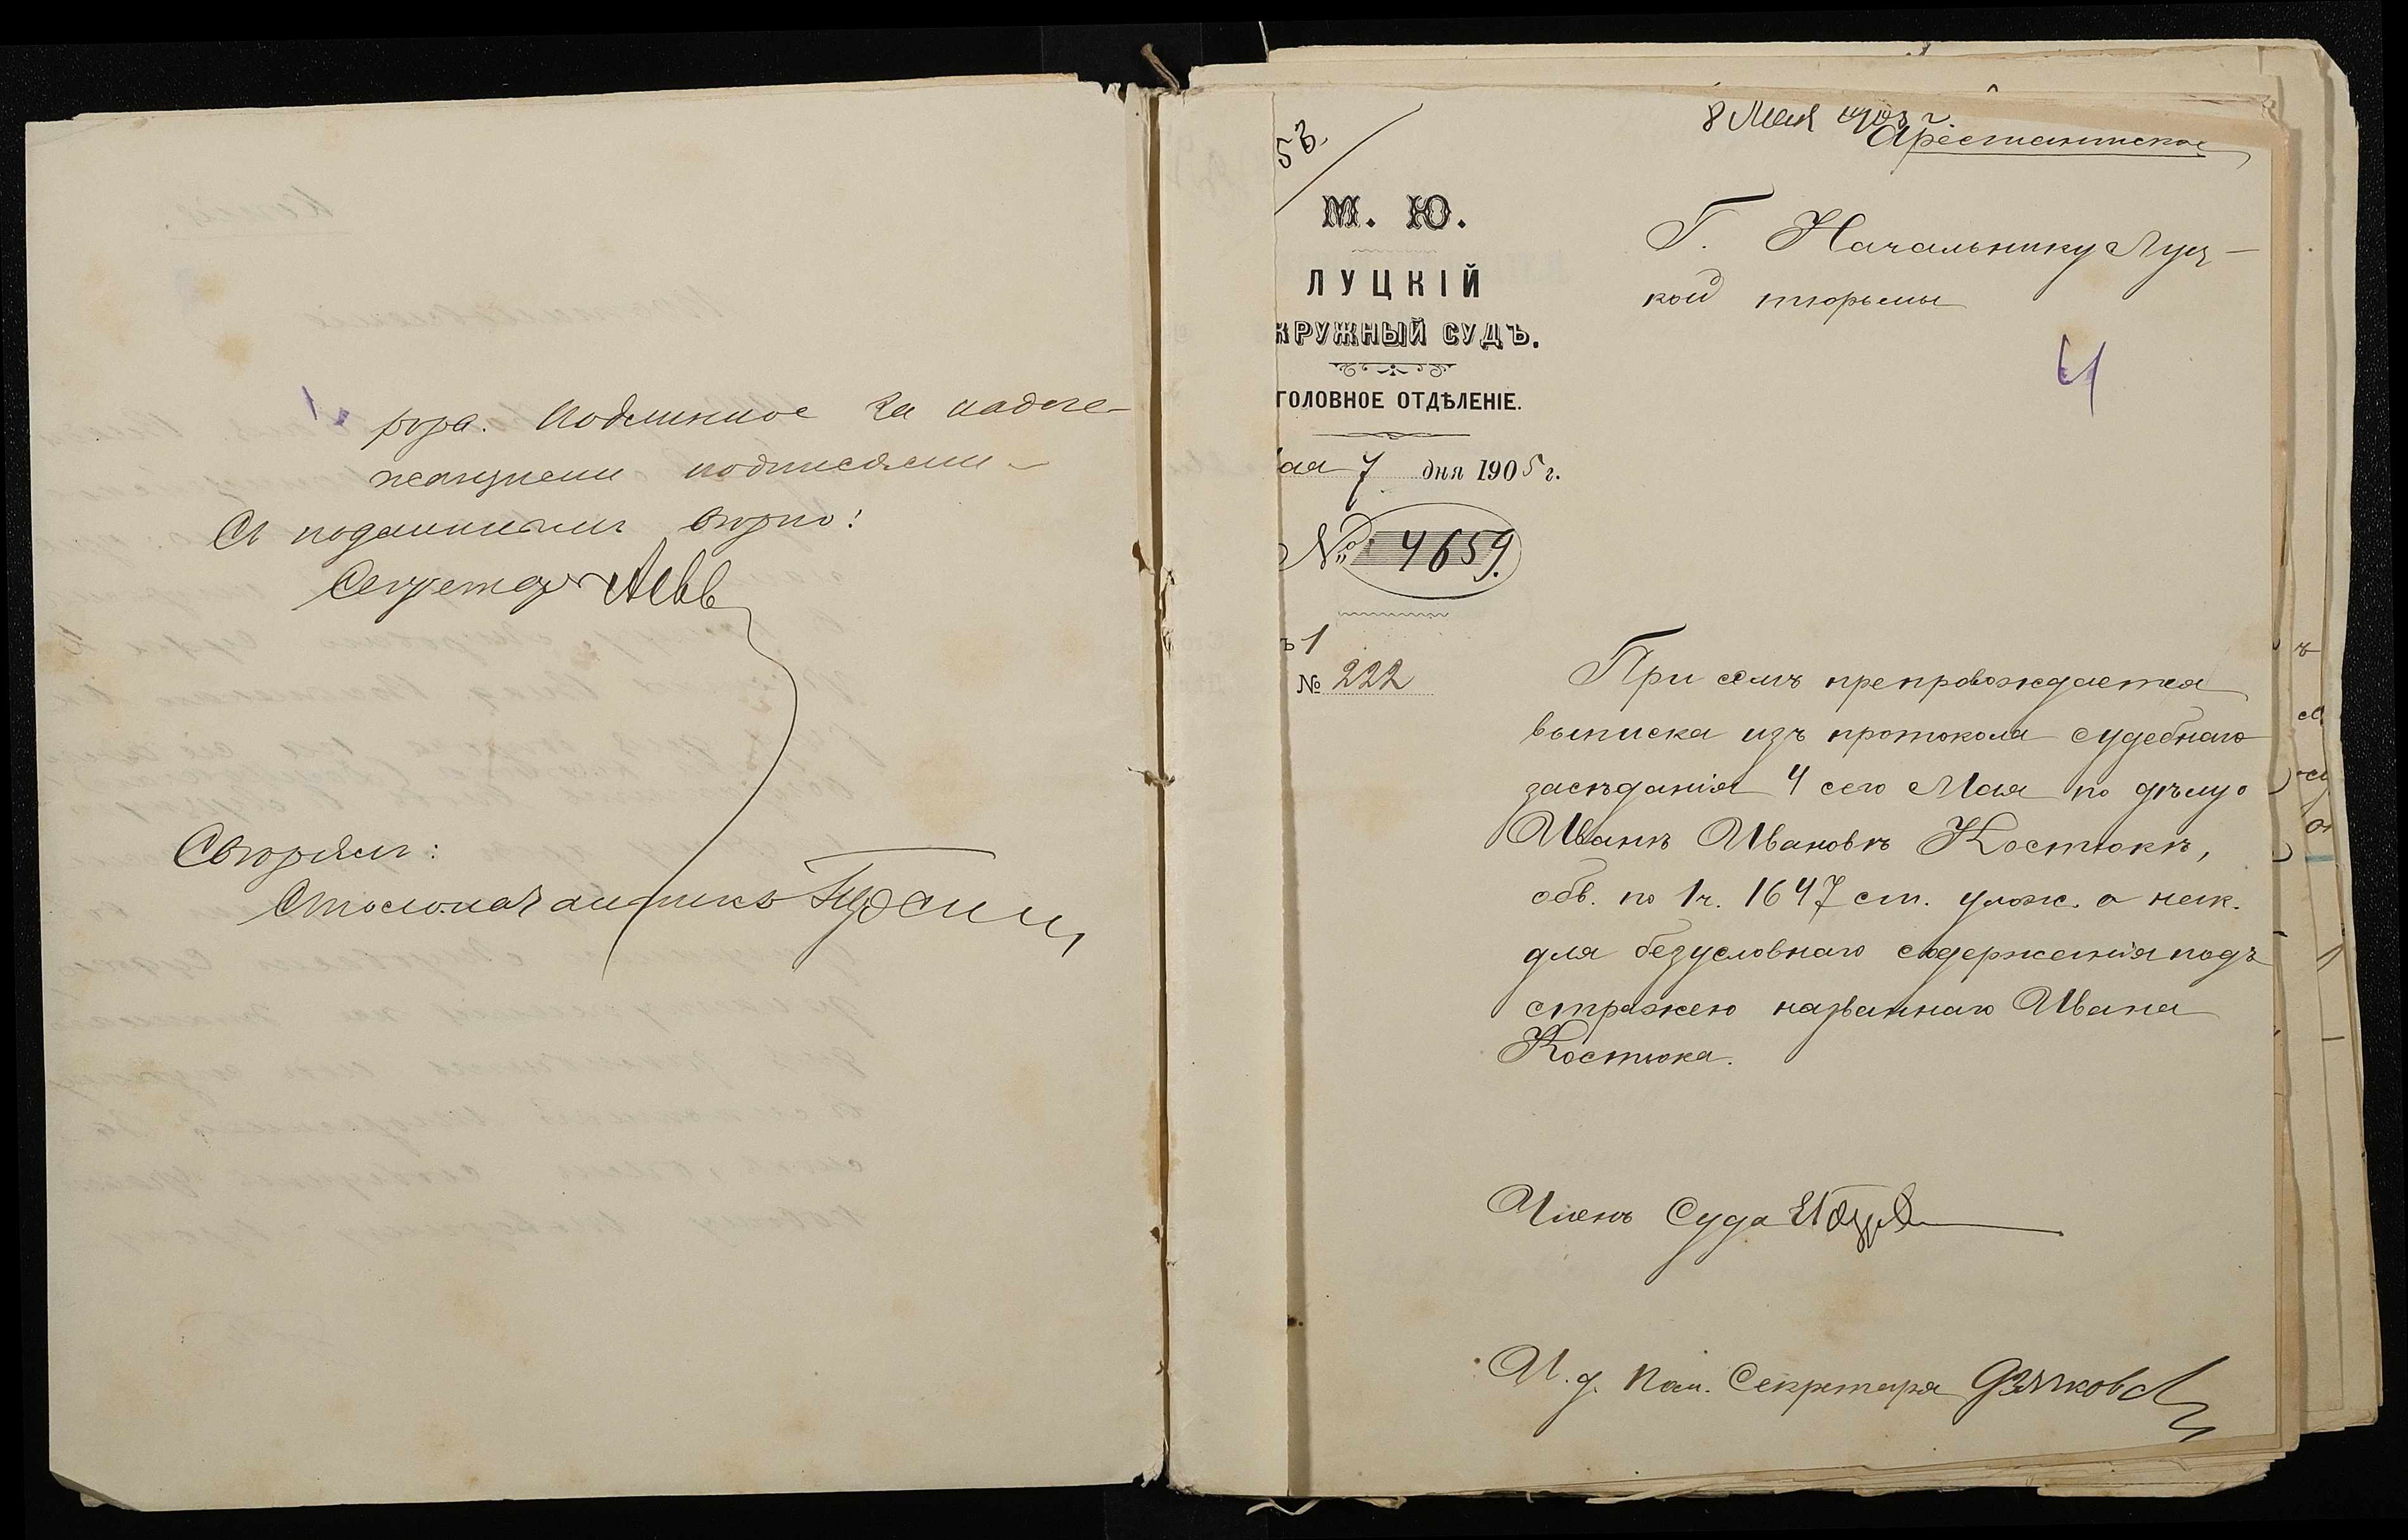 рора. Подлинное за надле-
жащими подписями
Съ подлиннымъ вѣрно:
Секретарь
Свѣрялъ:
Столоначальникъ
53.
8 Мая 1905 г.
Арестантское
М. Ю.
ЛУЦКІЙ
КРУЖНЫЙ СУДЪ.
ГОЛОВНОЕ ОТДѢЛЕНІЕ.
ая 7 дня 1905 г.
№ 4659.
ъ 1
№ 222
Г. Начальнику Луц-
кой тюрьмы
4
При семъ препровождается
выписка изъ протокола судебнаго
засѣданія 4 сего Мая по дѣлу о
Иванѣ Ивановѣ Костюкѣ,
обв. по 1 ч. 1647 ст. улож. о нак.
для безусловнаго содержанія подъ
стражею названнаго Ивана
Костюка.
Членъ Суда
И. д. Пом. Секретаря